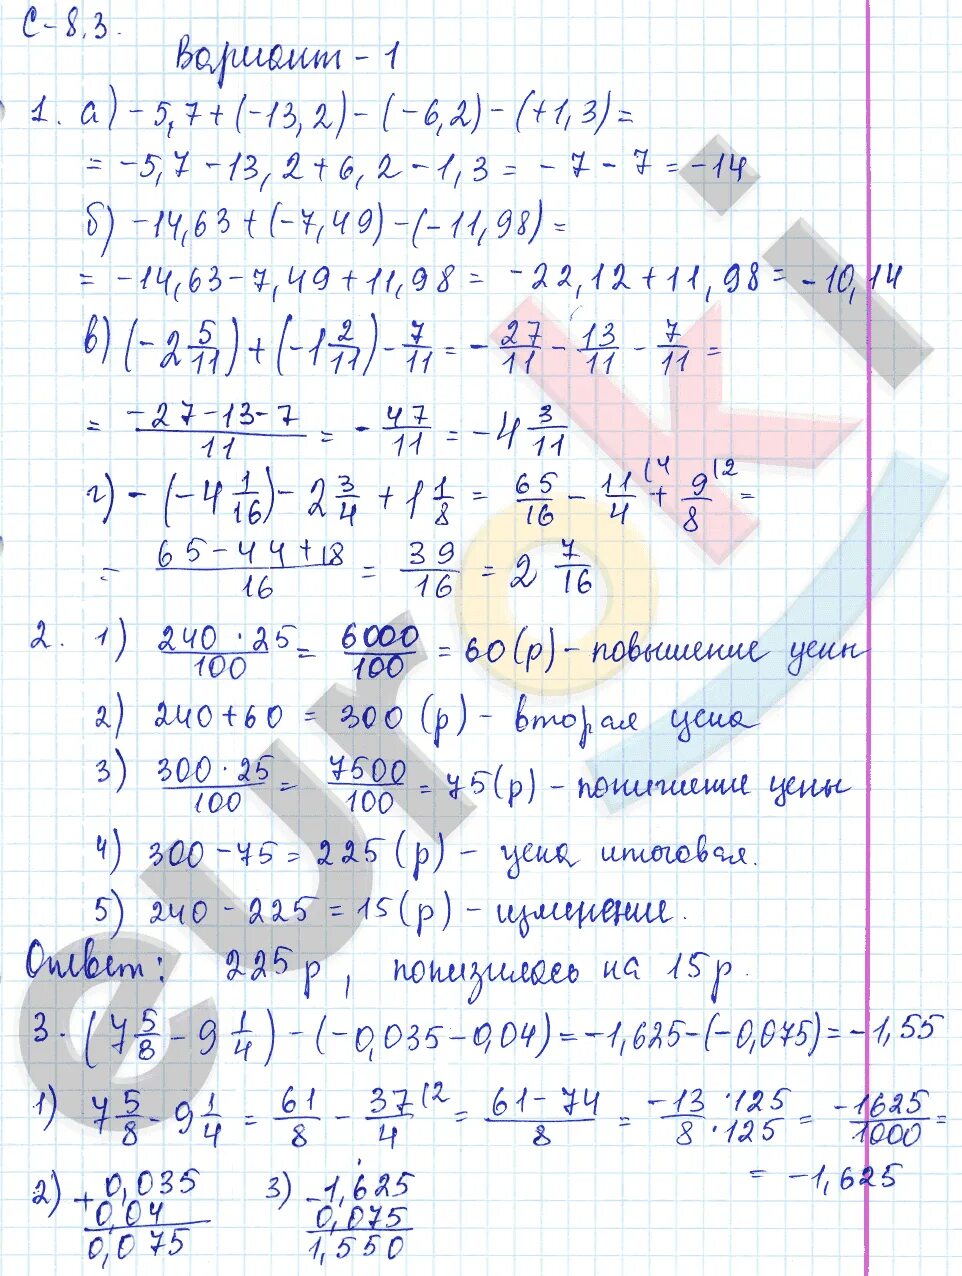 С-8.3.
Вариант-1
1. а) -5,7+(-13,2)-(-6,2)-(+1,3)=
= -5,7-13,2+6,2-1,3= -7-7=-14
б) -14,63+(-7,49)-(-11,98)=
= -14,63-7,49+11,98= -22,12+11,98= -10,14
в) (-2 5/11)+(-1 2/11)-7/11=-27/11-13/11-7/11=
= (-27-13-7)/11= -47/11=-4 3/11
г) -(-4 1/16)-2 3/4+1 1/8= 65/16-11/4(4+9/8(2=
= (65-44+18)/16= 39/16=2 7/16
2. 1) 240·25/100= 6000/100=60(р)-повышение цены
2) 240+60=300(р)-вторая цена
3) 300·25/100= 7500/100=75(р)-понижение цены
4) 300-75=225(р)- цена итоговая.
5) 240-225=15(р)-изменение.
Ответ: 225р, понизилось на 15р.
3. (7 5/8-9 1/4)-(-0,035-0,04)=-1,625-(-0,075)=-1,55
1) 7 5/8-9 1/4= 61/8-37/4(2= (61-74)/8= -13·125/8·125= -1625/1000=
= -1,625
2) +0,035
0,04
0,075
3) -1,625
0,075
1,550
euroki